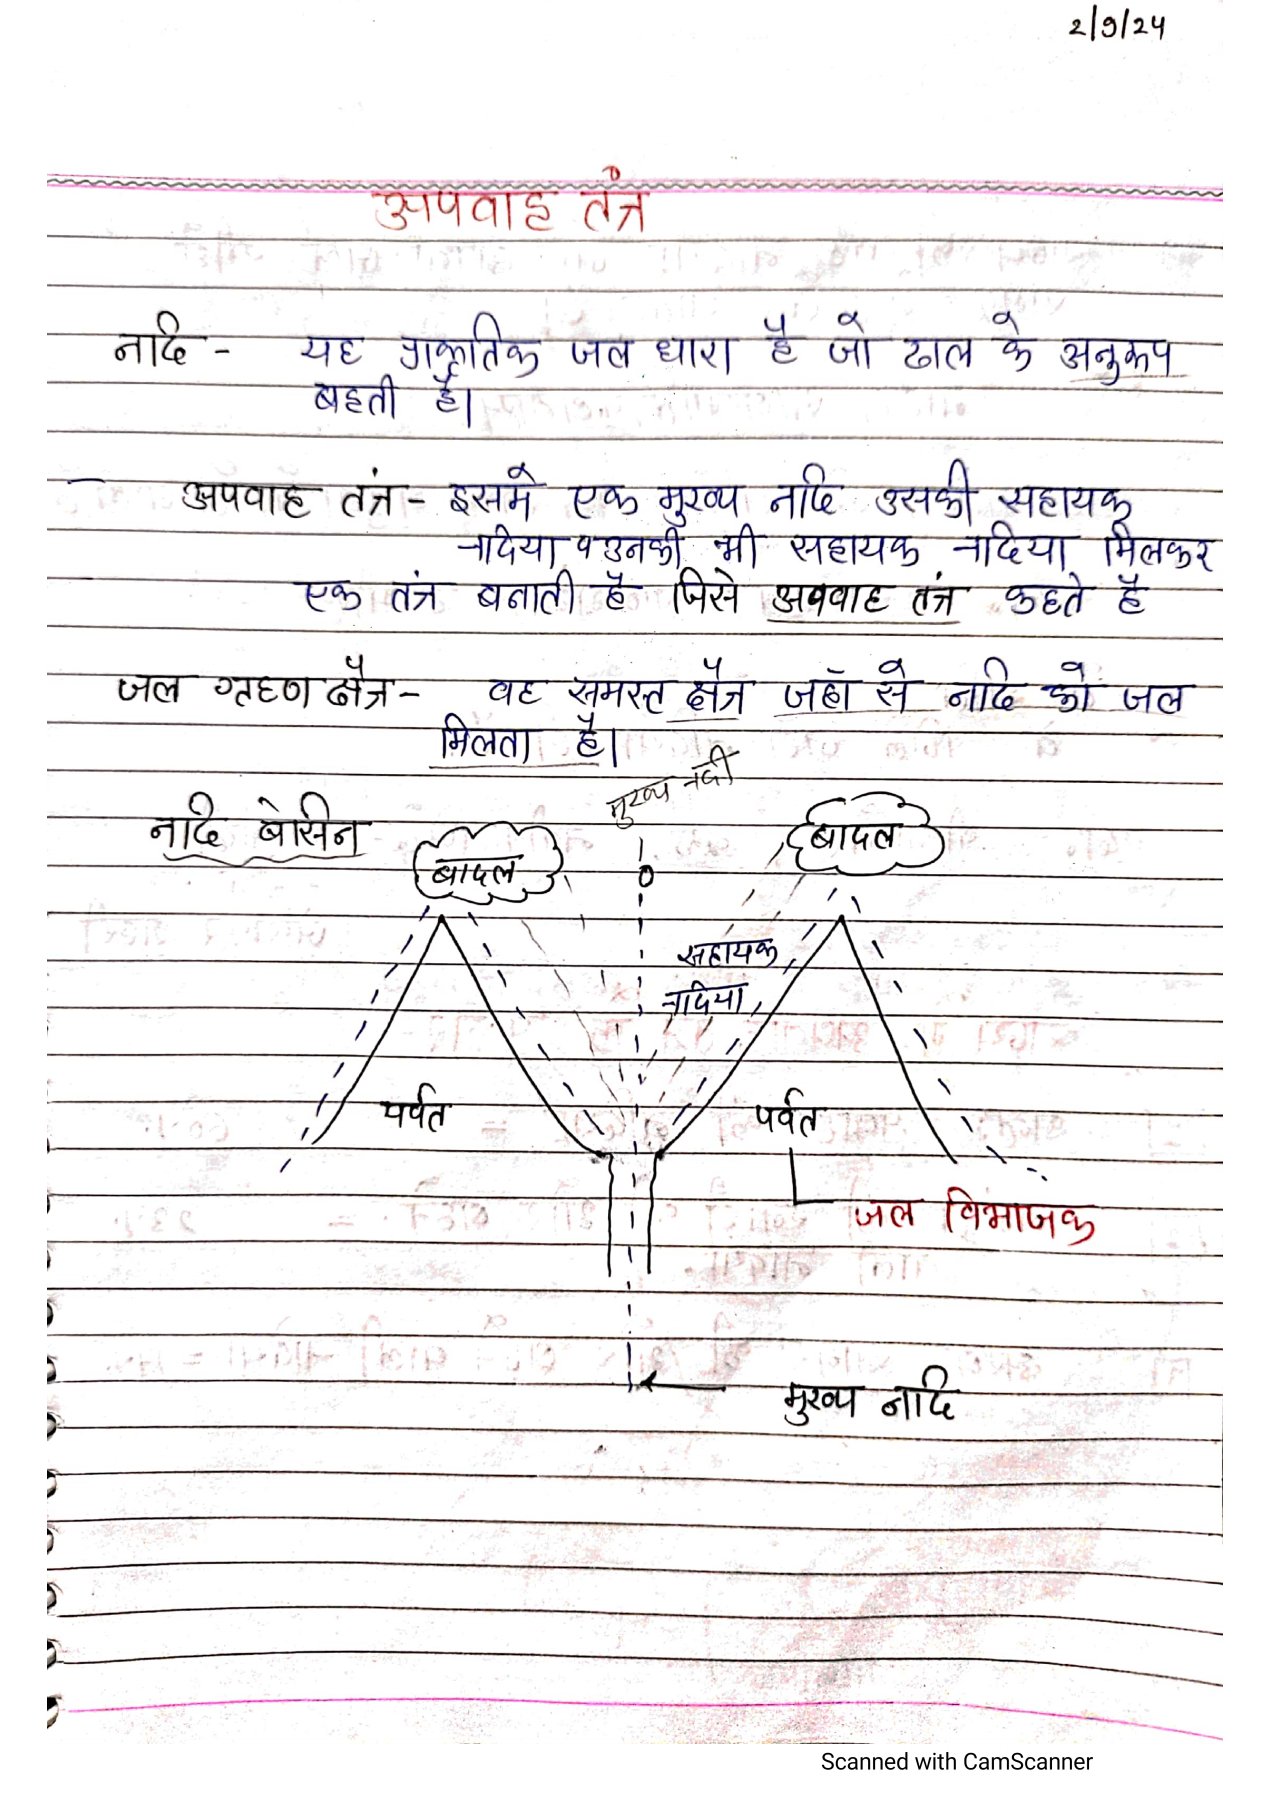 2/9/24
अपवाह तंत्र
नदि - यह प्राकृतिक जल धारा है जो ढाल के अनुरूप
बहती है।
अपवाह तंत्र - इसमे एक मुख्य नदि उसकी सहायक
नदिया व उनकी भी सहायक नदिया मिलकर
एक तंत्र बनाती है जिसे अपवाह तंत्र कहते है
जल ग्रहण क्षेत्र - वह समस्त क्षेत्र जहाँ से नदि को जल
मिलता है।
मुख्य नदी
नदि बेसिन
बादल
बादल
सहायक
नदिया
पर्वत
पर्वत
जल विभाजक
मुख्य नदि
Scanned with CamScanner